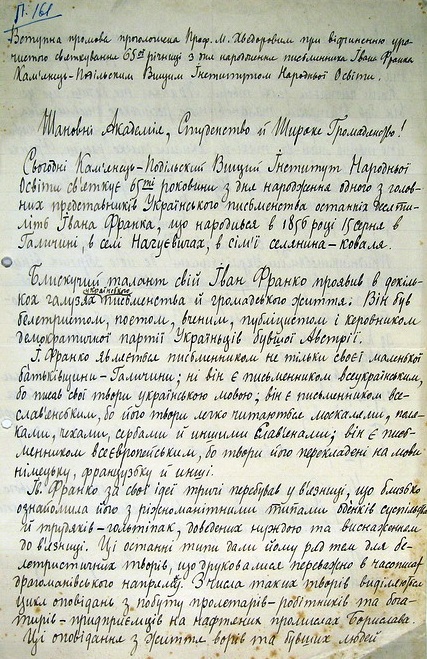 П. 161
Вступна промова проголошена Проф. М. Хведоровим при відчиненню уро-
чистого святкування 65ої річниці з дня народження письменника Івана Франка
Кам'янець-Подільским Вищим Інститутом Народньої Освіти.
Шановні Академія, Студенство й Широке Громадянство!
Сьогодні Кам'янець-Подільский Вищий Інститут Народньої
Освіти св'еткує 65ті роковини з дня народження одного з голов-
них представників Українського письменства останніх десяти-
літь Івана Франка, що народився в 1856 році 15 серпня в
Галичині, в селі Нагуєвичах, в сім'ї селянина-коваля.
Блискучий талант свій Іван Франко проявив в декіль-
кох галузах українського письменства й громадського життя: Він був
белетристом, поетом, вченим, публіцистом і керовником
демократичної партії Українців бувшої Австрії.
І. Франко являється письменником не тільки своєї маленької
батьківщини-Галичини; ні він є письменником всеукраїнським,
бо писав свої твори українською мовою; він є письменником все-
слав'енським, бо його твори легко читаються москалями, поля-
ками, чехами, сербами й иншими Слав'енами; він є пись-
менником всеевропейським, бо твори його перекладені на мови
німецьку, французьку й инші.
Ів. Франко за свої ідеї тричі перебував у в'язниці, що близько
ознайомила його з ріжноманітними типами
й трудяків-гольтіпак, доведених нуждою та виснаженням
до в'язниці. Ці останні типи дали йому ряд тем для бе-
летристичних творів, що друковалися переважно в часописах
драгоманівського напрямку. З числа таких творів виділяються
цикл оповідань з побуту пролетарів-робітників та бога-
тирів-придприємців на нафтяних промислах Борислава.
Ці оповідання з життя ворів та бувших людей